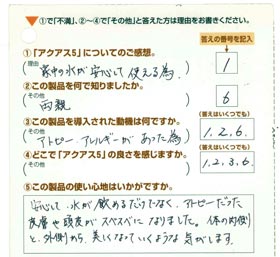 ▼①で「不満」、②~④で「その他」と答えた方は理由をお書きください。
答えの番号を記入
①「アクアス5」についてのご感想。
(理由
家中の水が安心して使える為.
1
②この製品を何で知りましたか?
(その他
両親
6
③この製品を導入された動機は何ですか?
(答えはいくつでも)
(その他
アトピー.アレルギーがあった為
1.2.6.
④どこで「アクアス5」の良さを感じますか?
(答えはいくつでも)
(その他
1.2.3.6.
⑤この製品の使い心地はいかがですか?
安心して.水が飲めるだけでなく.アトピーだった
皮膚や頭皮がスベスベになりました。体の内側
と.外側から.美しくなっていくような気がします.